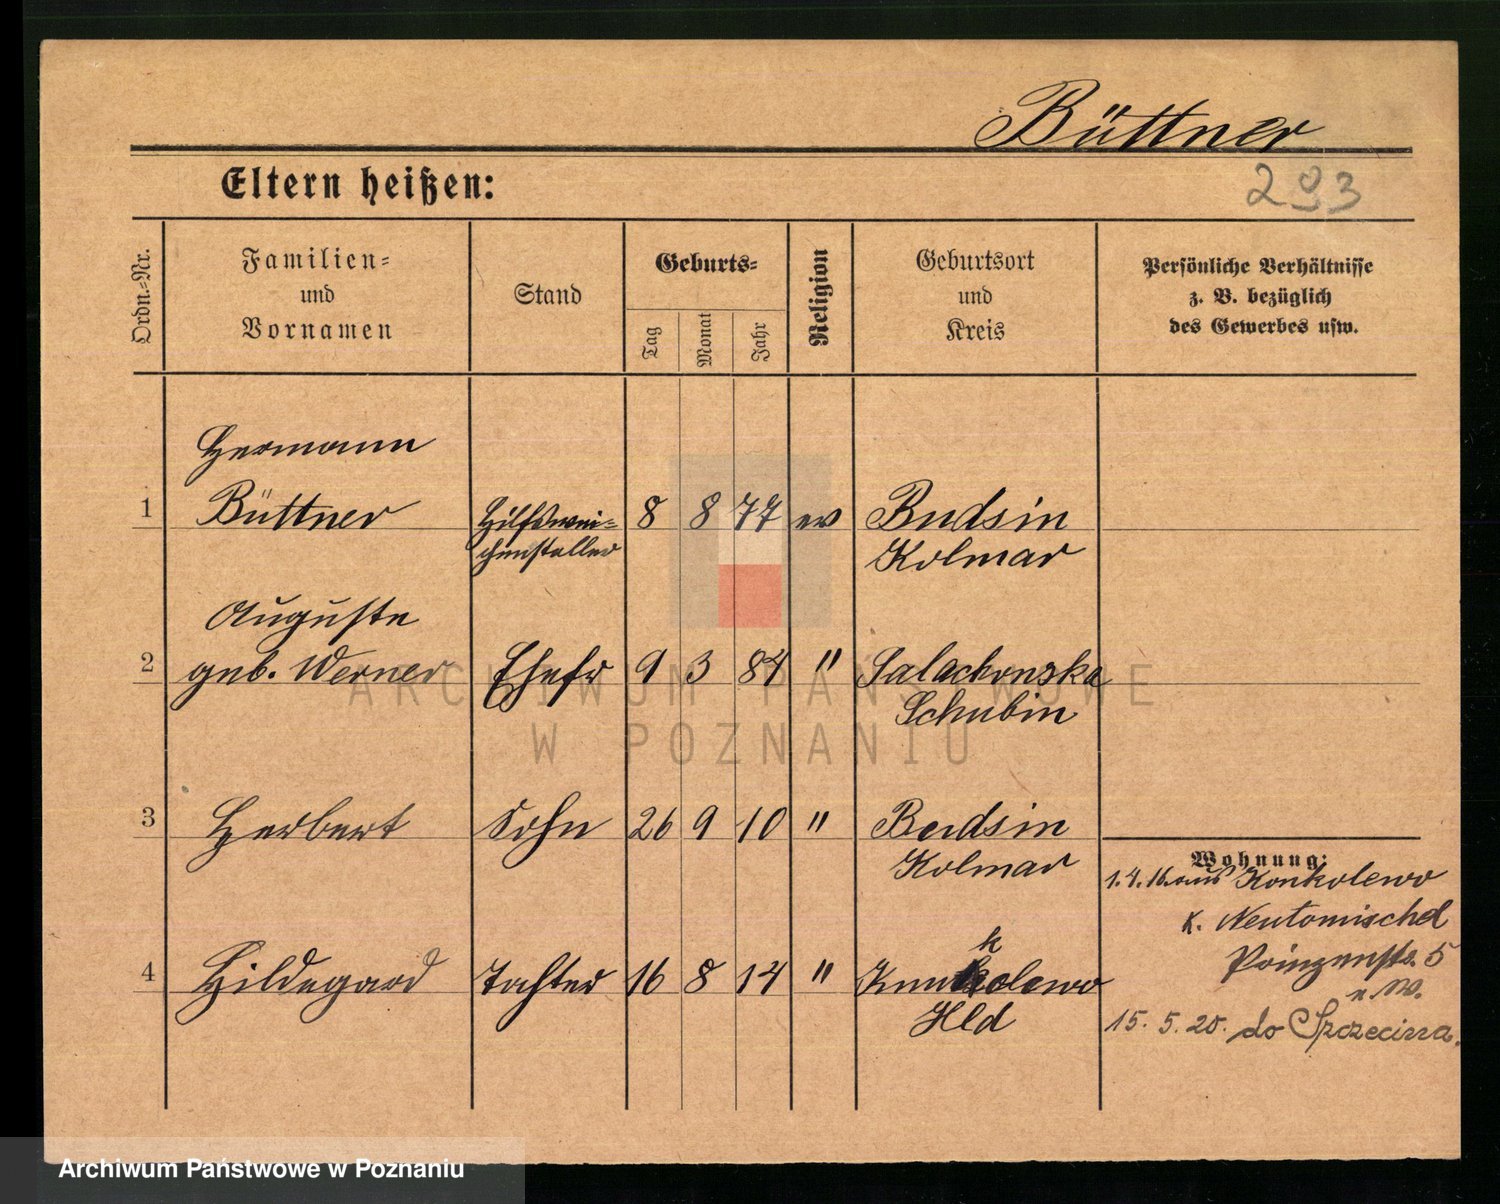 Büttner
Eltern heißen:
293
Ordn.-Nr.
Familien-
und
Vornamen
Stand
Geburts-
Tag
Monat
Jahr
Religion
Geburtsort
und
Kreis
Persönliche Verhältnisse
z. B. bezüglich
des Gewerbes usw.
Hermann
1 Büttner Hilfswei- 8 8 77 ev Budsin
chensteller Kolmar
Auguste
2 geb. Werner Ehefr 9 3 84 " Salachonska
Schubin
3 Herbert Sohn 26 9 10 " Budsin
Kolmar
Wohnung:
1.4.16. aus Konkolewo
K. Neutomischel
Prinzenstr. 5
k
4 Hildegard Tochter 16 8 14 " Konkolewo
15. 5. 20. do Szczecina.
ARCHIWUM PAŃSTWOWE
W POZNANIU
Archiwum Państwowe w Poznaniu